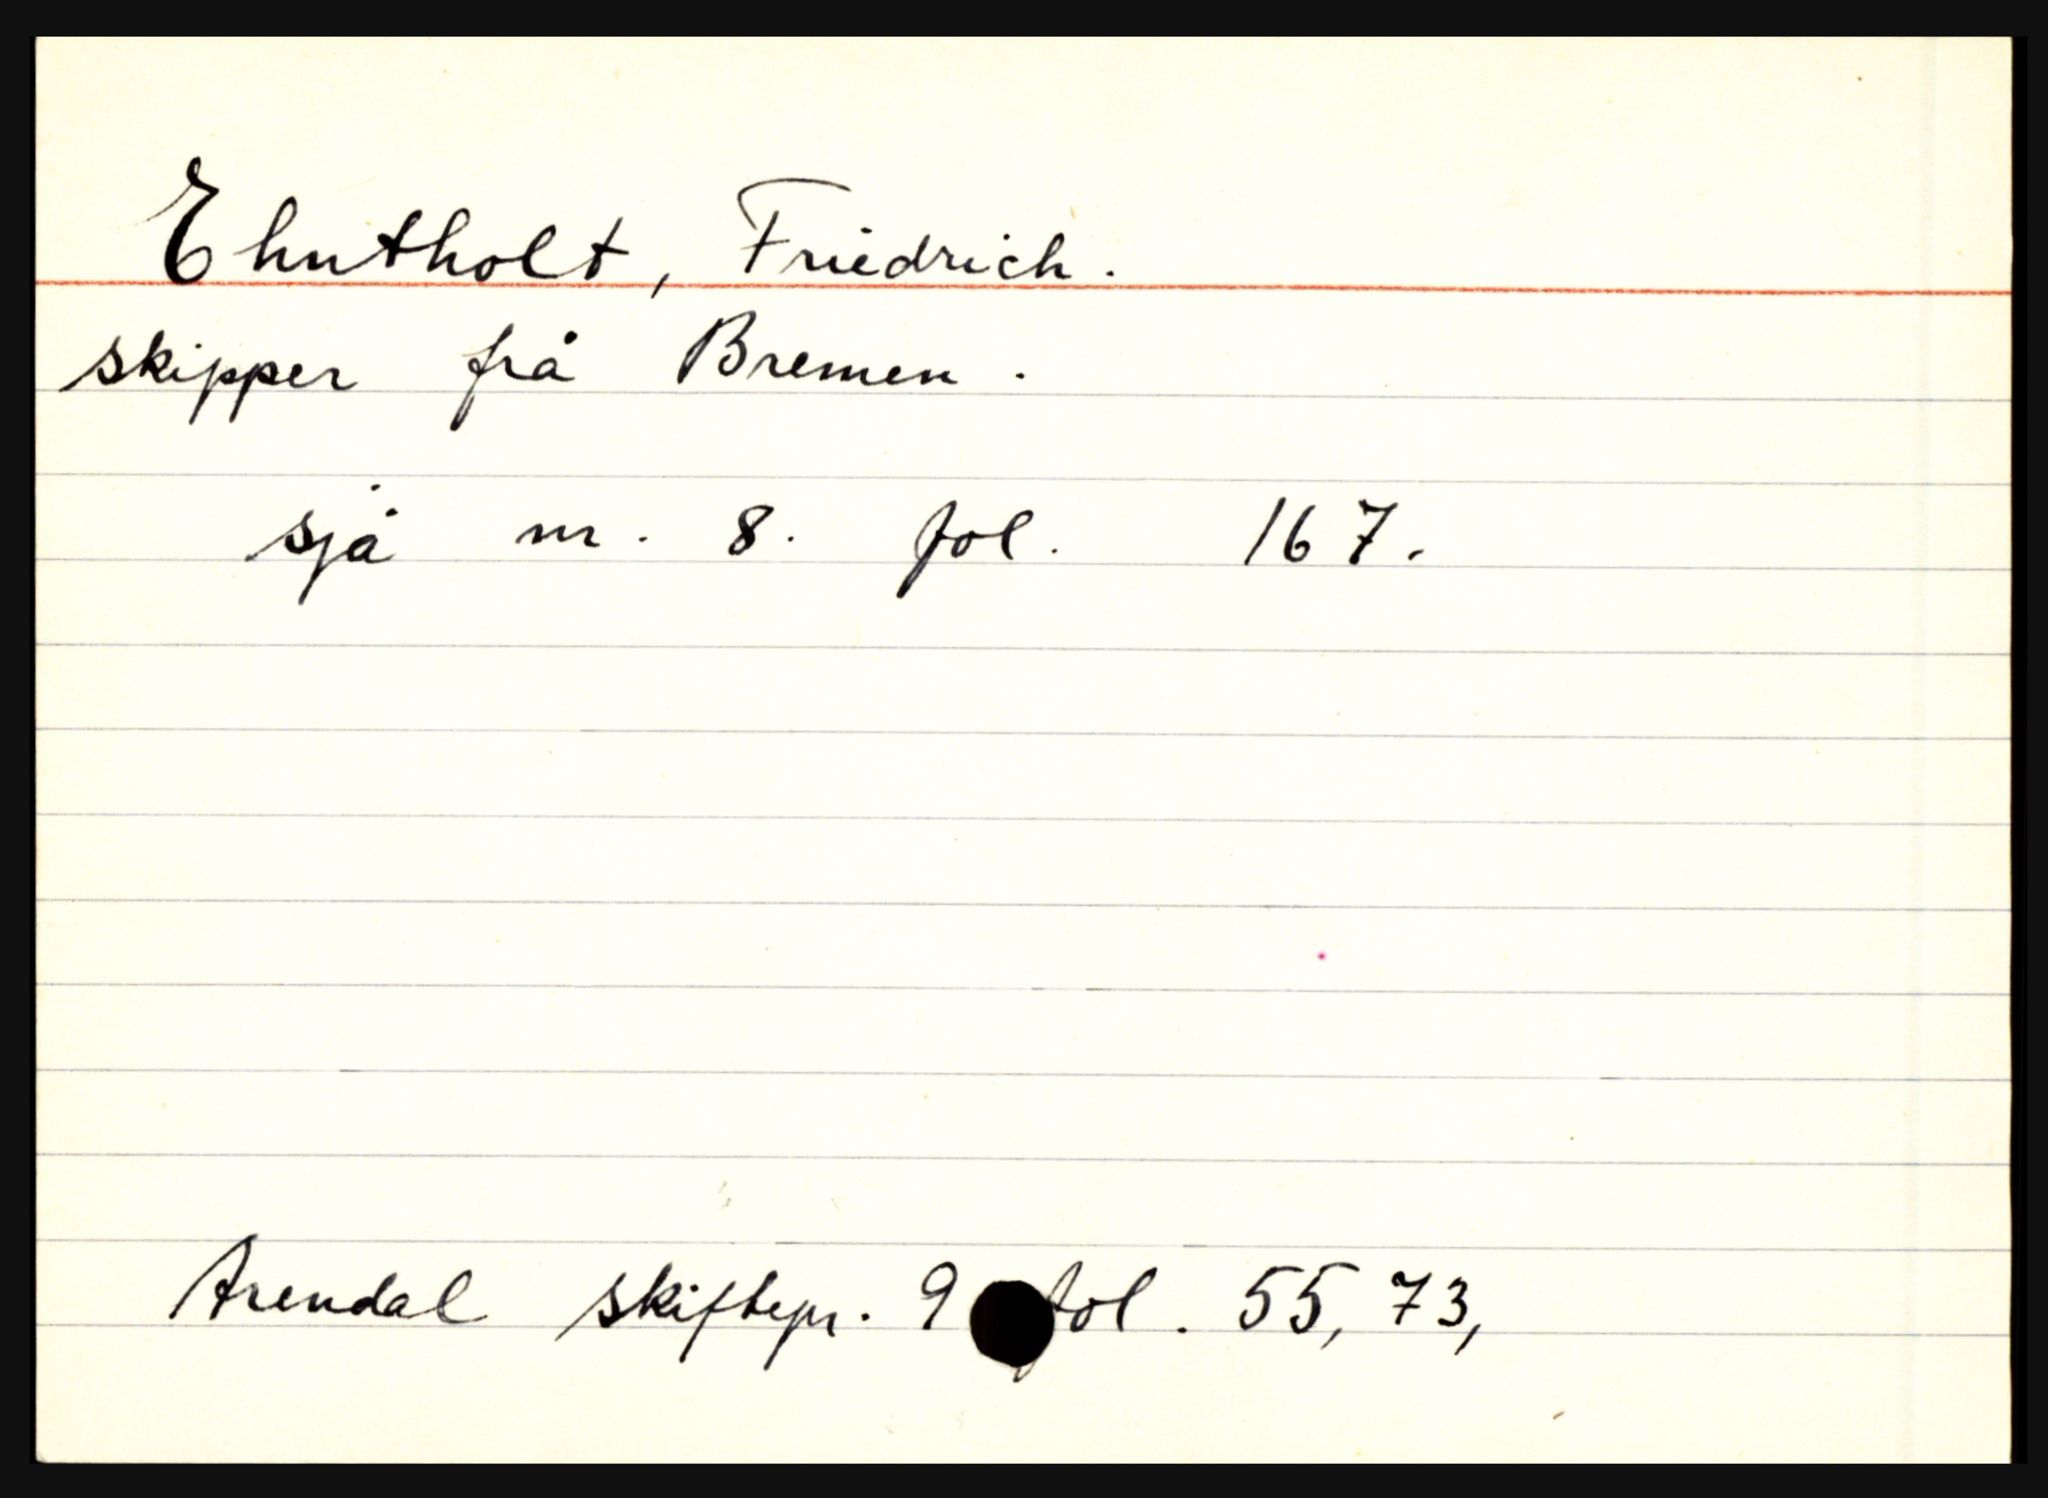 Ehntholt, Friedrich.
skipper frå Bremen.
sjå nr. 8. fol. 167.
Arendal skiftepr. 9 fol. 55, 73,